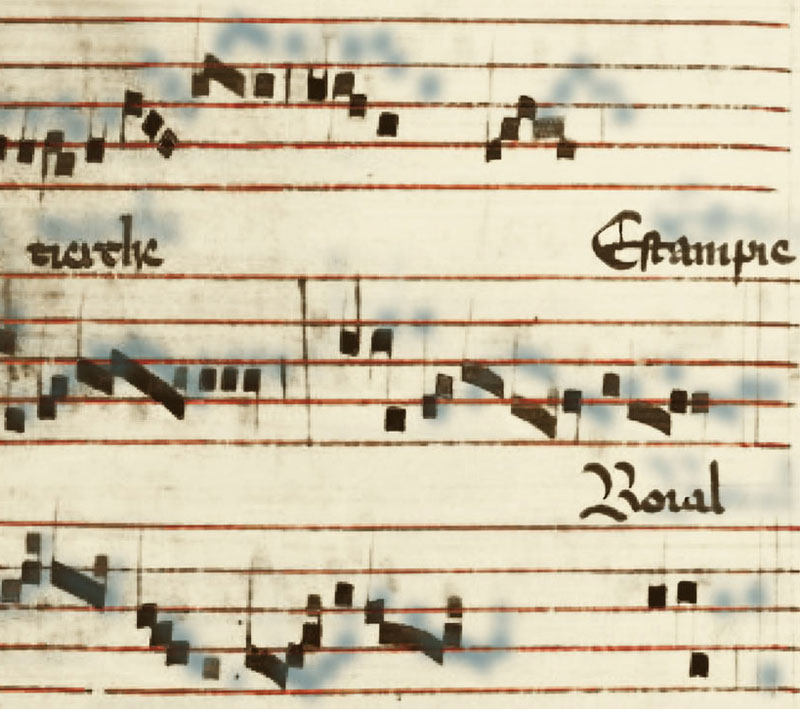 tierche
Estampie
Roial